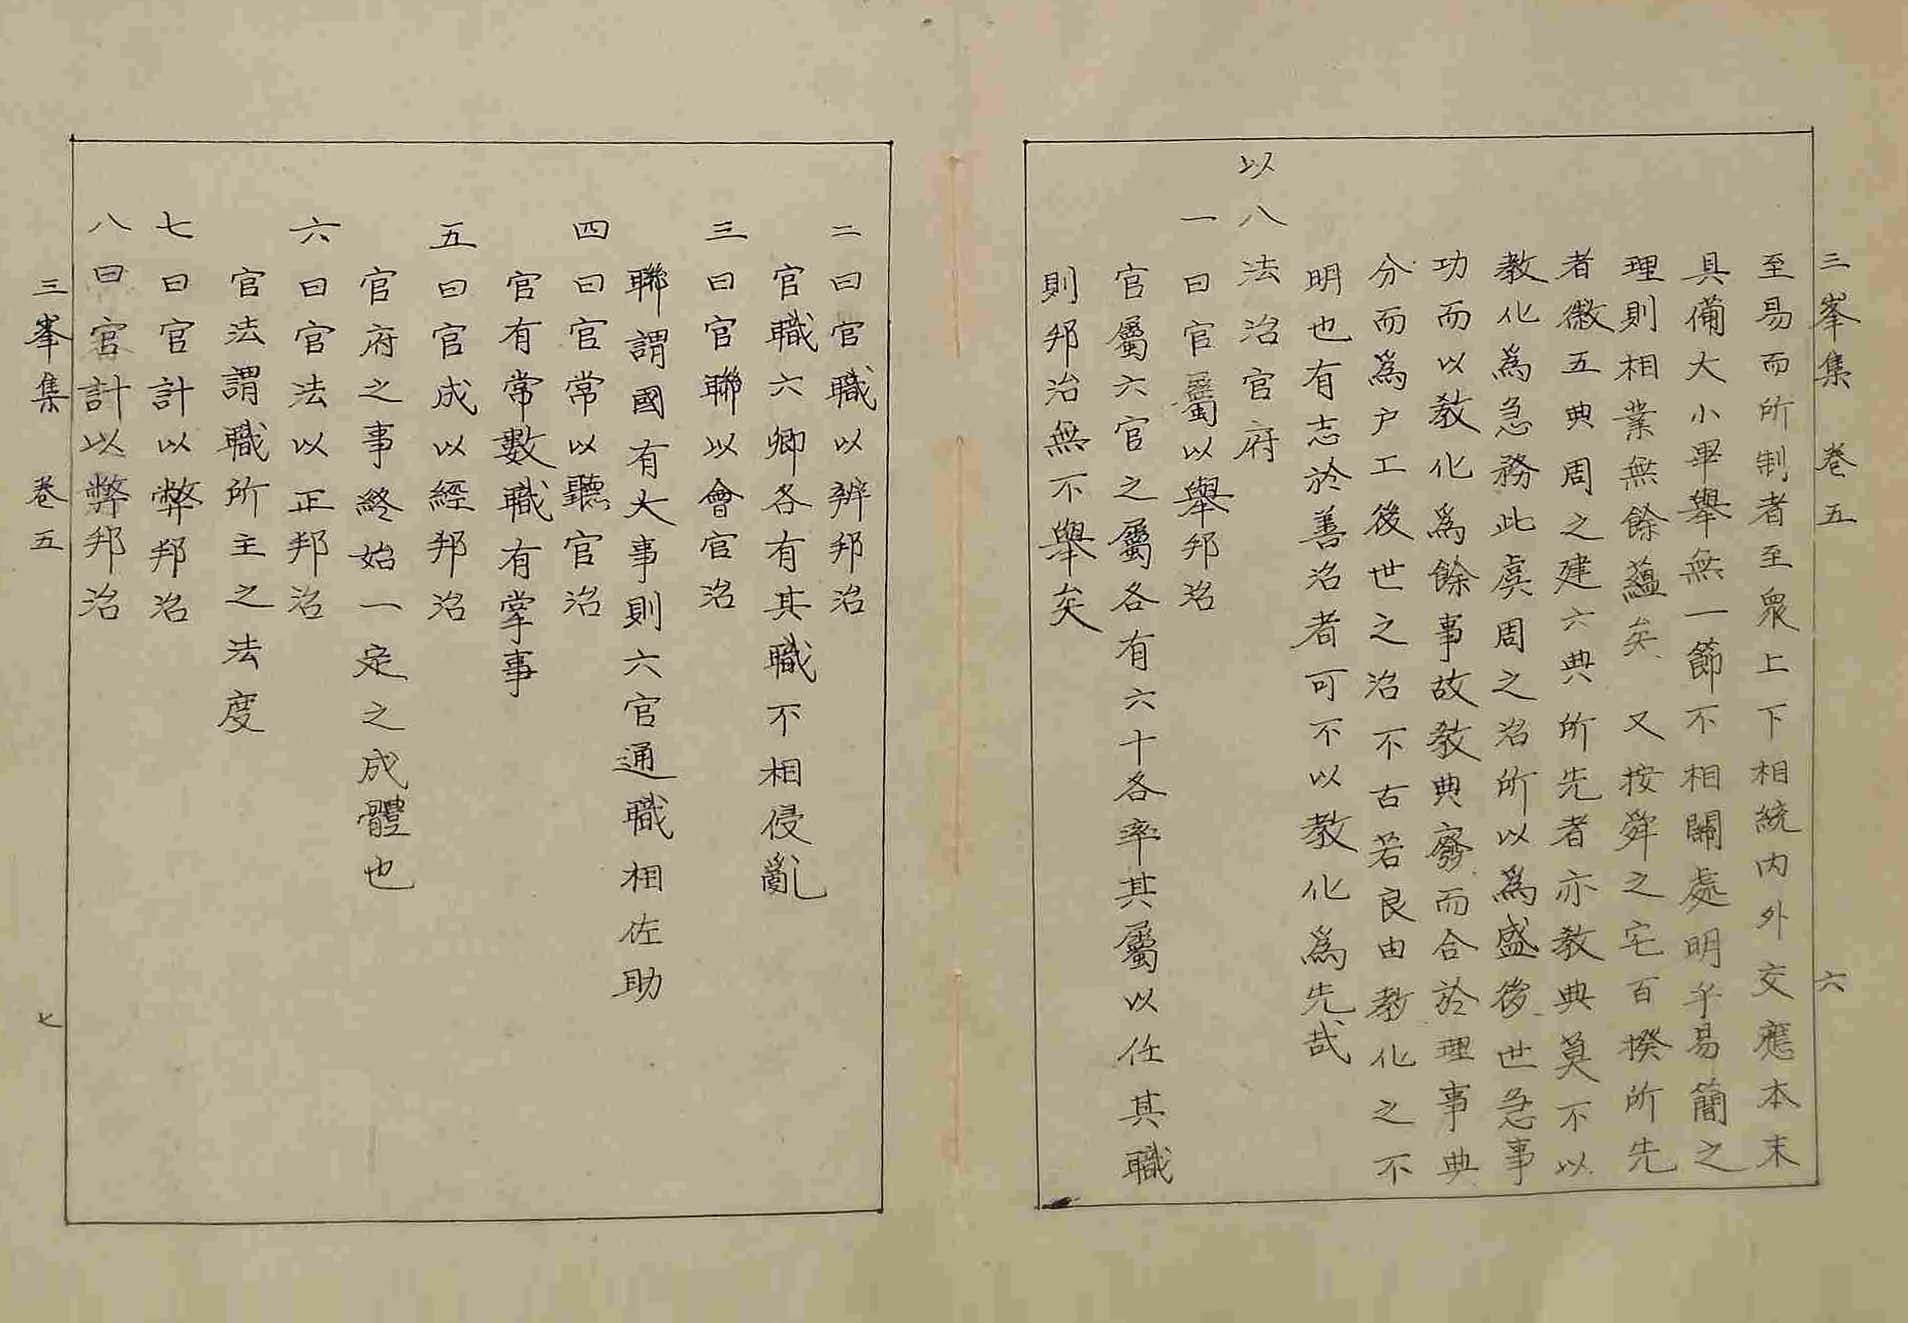 三峯集　卷五　六
至易而所制者至衆上下相統內外交應本末
具備大小畢舉無一節不相關處明乎易簡之
理則相業無餘蘊矣又按舜之宅百揆所先
者徽五典周之建六典所先者亦教典莫不以
教化爲急務此虞周之治所以爲盛後世急事
功而以教化爲餘事故教典廢而合於理事典
分而爲户工後世之治不古若良由教化之不
明也有志於善治者可不以教化爲先哉
以八法治官府
一曰官屬以舉邦治
官屬六官之屬各有六十各率其屬以任其職
則邦治無不舉矣
二曰官職以辨邦治
官職六卿各有其職不相侵亂
三曰官聯以會官治
聯謂國有大事則六官通職相佐助
四曰官常以聽官治
官有常數職有掌事
五曰官成以經邦治
官府之事終始一定之成體也
六曰官法以正邦治
官法謂職所主之法度
七曰官計以弊邦治
八曰官計以弊邦治
三峯集　卷五　七